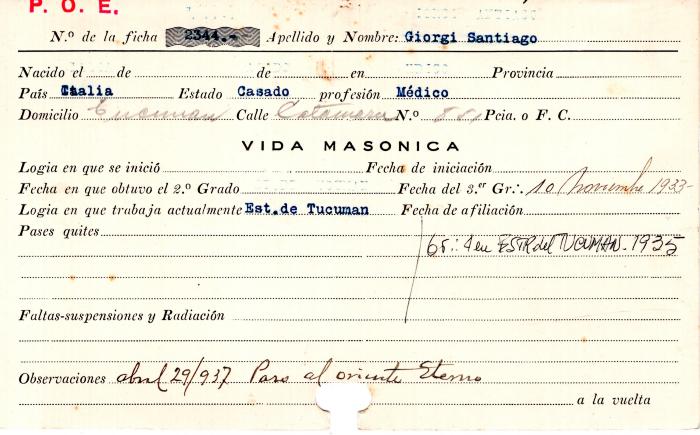 P. O. E.
N.º de la ficha 2344.- Apellido y Nombre: Giorgi Santiago
Nacido el de de en Provincia
País Italia Estado Casado profesión Médico
Domicilio Tucuman Calle Catamarca N.º 881 Pcia. o F. C.
VIDA MASONICA
Logia en que se inició Fecha de iniciación
Fecha en que obtuvo el 2.º Grado Fecha del 3.er Gr∴ 10 Noviembre 1933-
Logia en que trabaja actualmente Est.de Tucuman Fecha de afiliación
Pases quites
Gr∴ 4 en ESTR del TUCUMAN-1935
Faltas-suspensiones y Radiación
Observaciones abril 29/937 Paso al oriente Eterno
a la vuelta